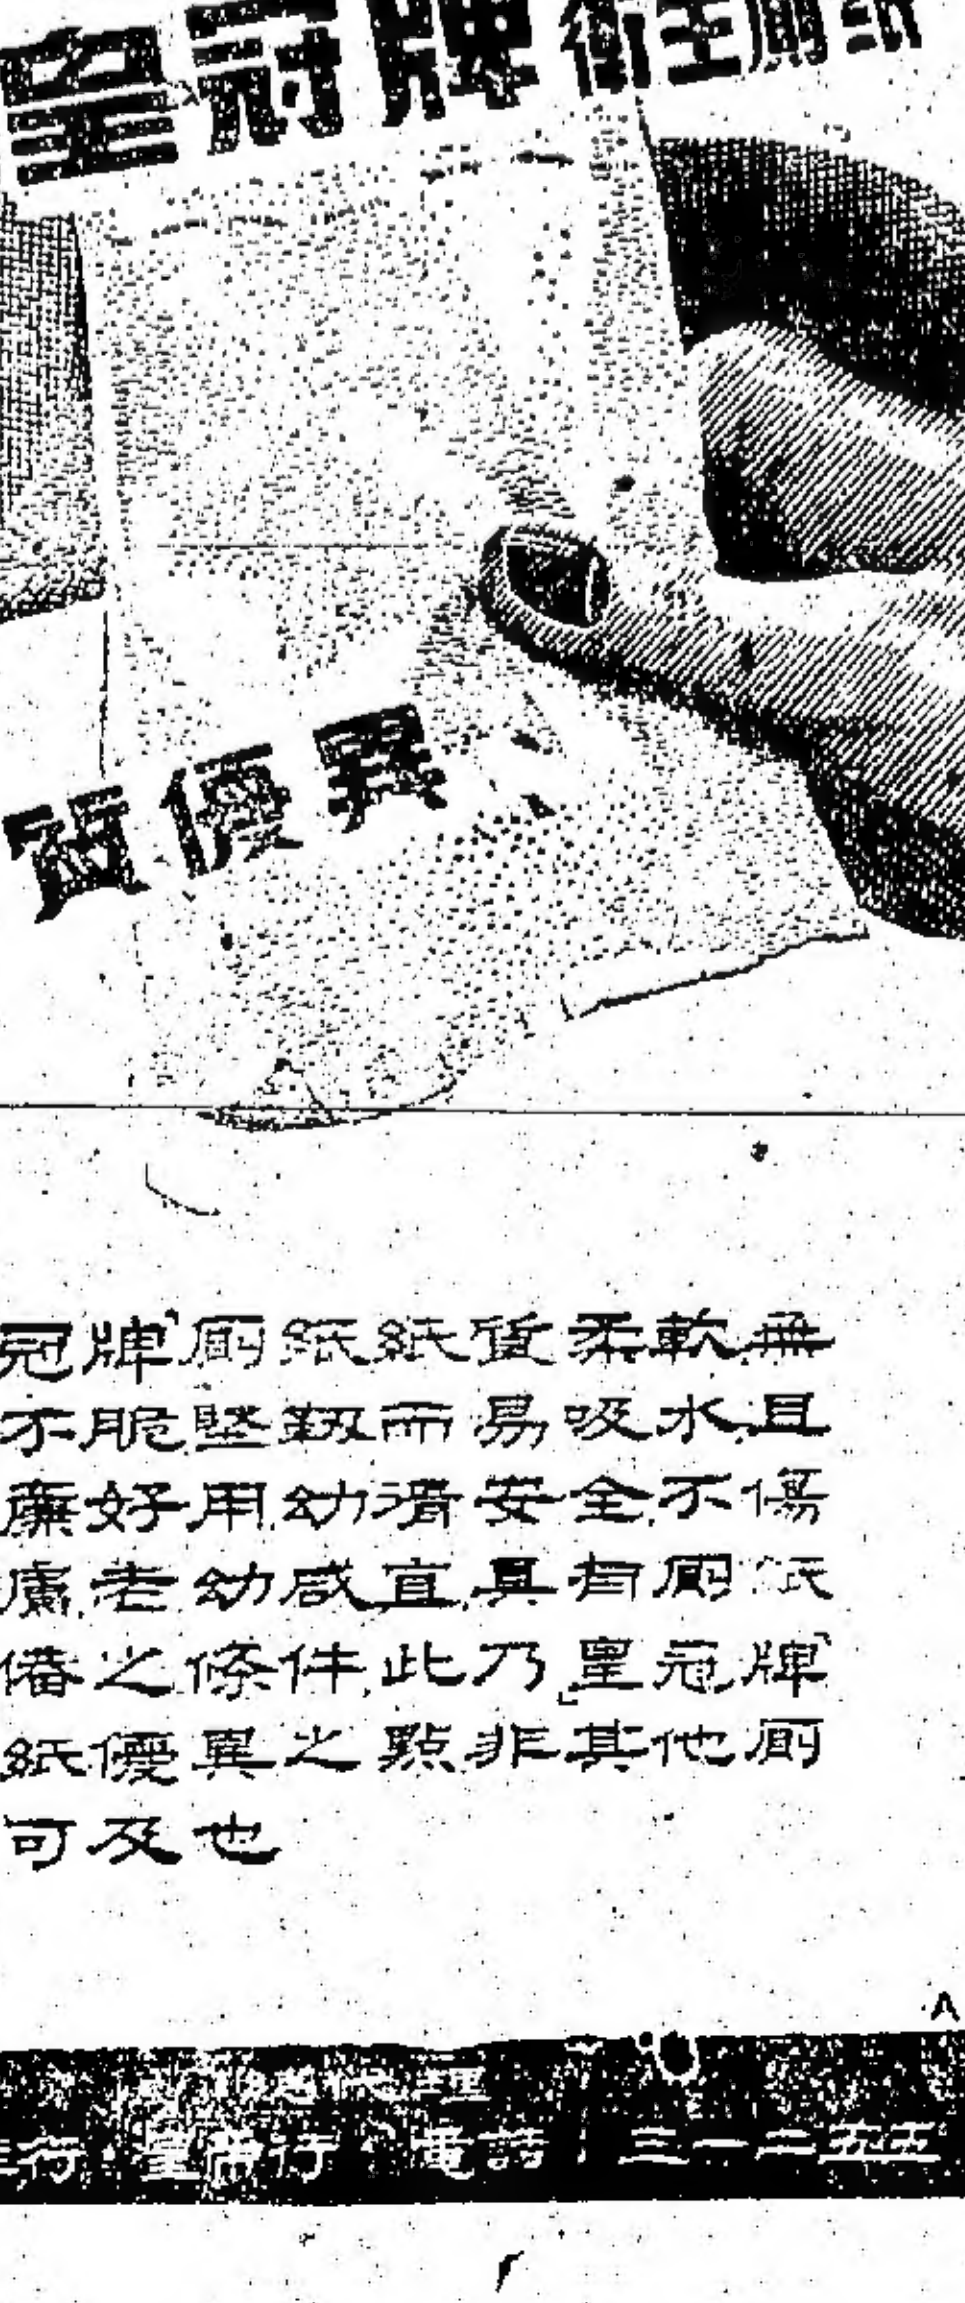 皇冠牌衛生廁紙
質優異
冠牌」廁紙紙質柔軟無
不脆堅韌而易吸水且
廉好用幼滑安全不傷
膚老幼咸宜具有廁紙
備之條件此乃「皇冠牌」
紙優異之點非其他廁
可及也
理
行 皇帝行 電話 三一二五五